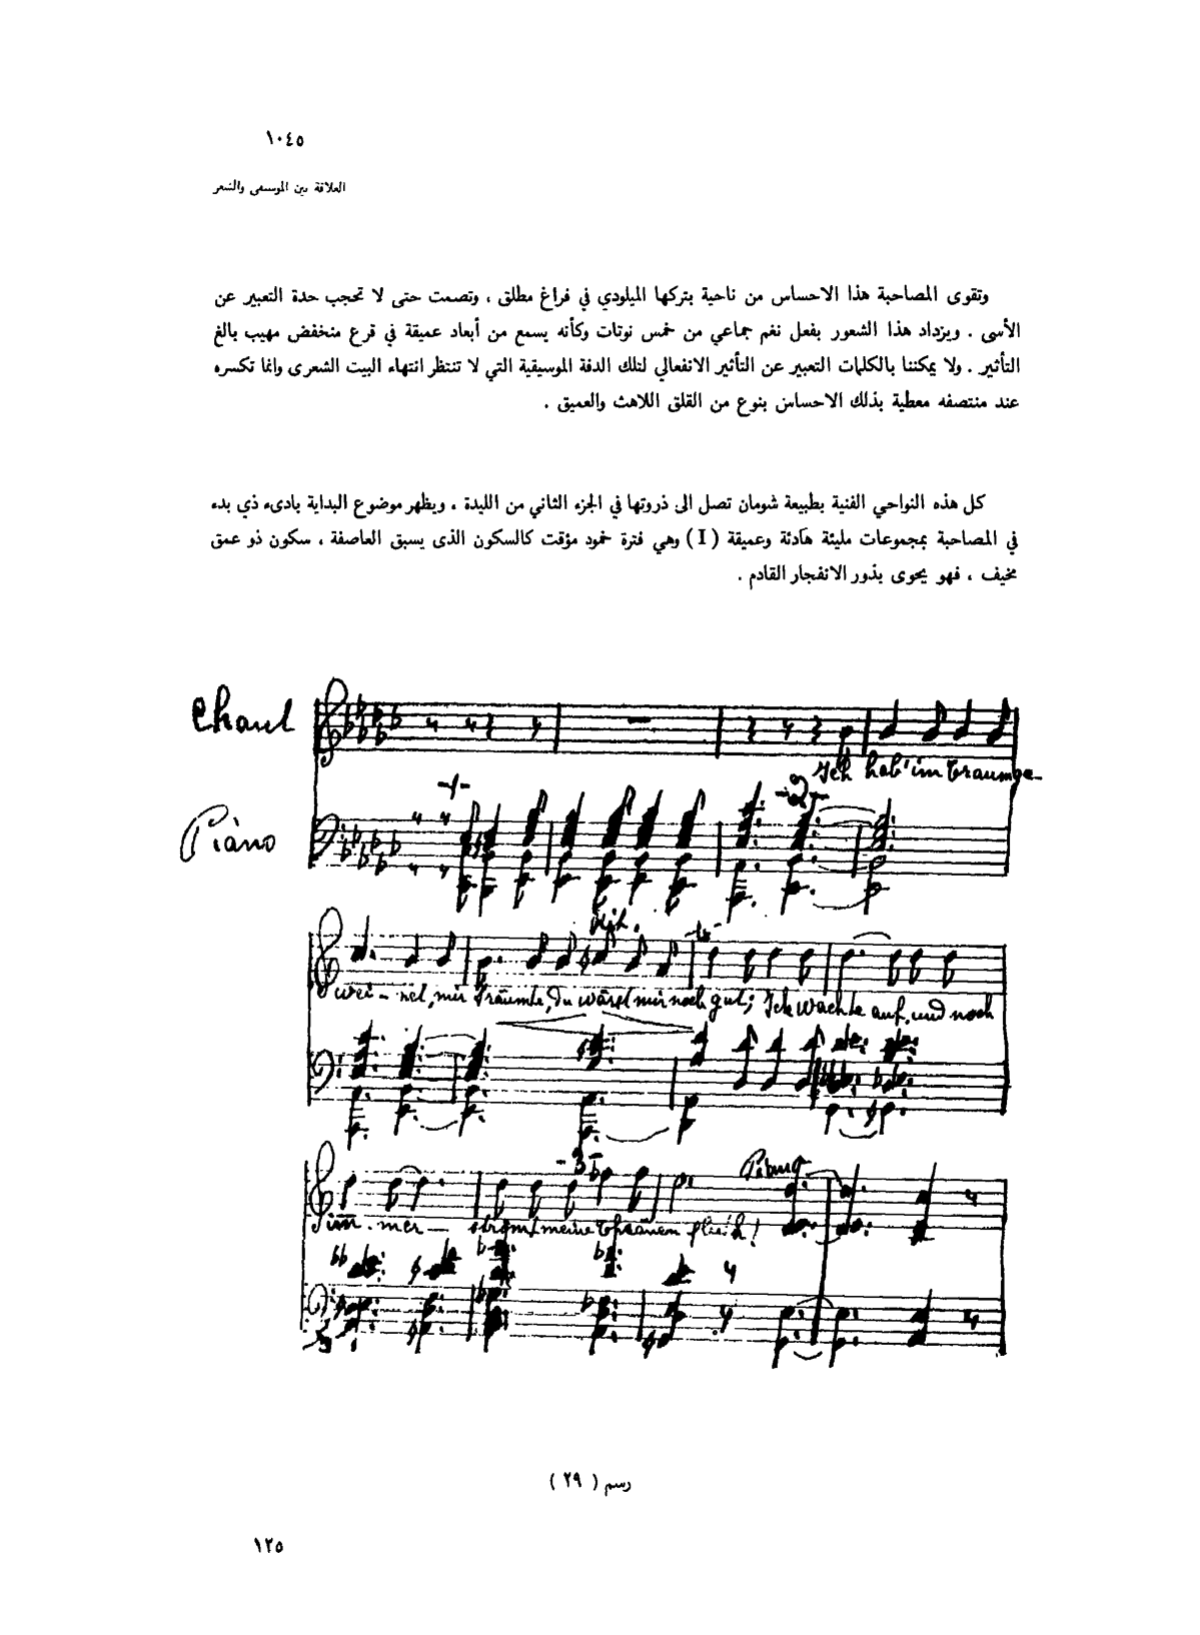 ١٠٤٥
العلاقة بين الموسيقى والشعر
وتقوى المصاحبة هذا الاحساس من ناحية بتركها الميلودي في فراغ مطلق ، وتصمت حتى لا تحجب حدة التعبير عن
الأسى . ويزداد هذا الشعور بفعل نغم جماعي من خمس نوتات وكأنه يسمع من أبعاد عميقة في قرع منخفض مهيب بالغ
التأثير . ولا يمكننا بالكلمات التعبير عن التأثير الانفعالي لتلك الدفة الموسيقية التي لا تنتظر انتهاء البيت الشعرى وانما تكسره
عند منتصفه معطية بذلك الاحساس بنوع من القلق اللاهث والعميق .
كل هذه النواحي الفنية بطبيعة شومان تصل الى ذروتها في الجزء الثاني من الليدة ، ويظهر موضوع البداية بادىء ذي بدء
في المصاحبة بمجموعات مليئة هادئة وعميقة ( I ) وهي فترة خمود مؤقت كالسكون الذى يسبق العاصفة ، سكون ذو عمق
مخيف ، فهو يحوى بذور الانفجار القادم .
Chant
Ich hab' im traum ge-
-1-
-2-
Piano
wei - net, mir träumte, Du wärst mir noch gut; Ich wachte auf, und noch
-3-
im - mer strömt meine thränen
رسم ( ٢٩ )
١٢٥